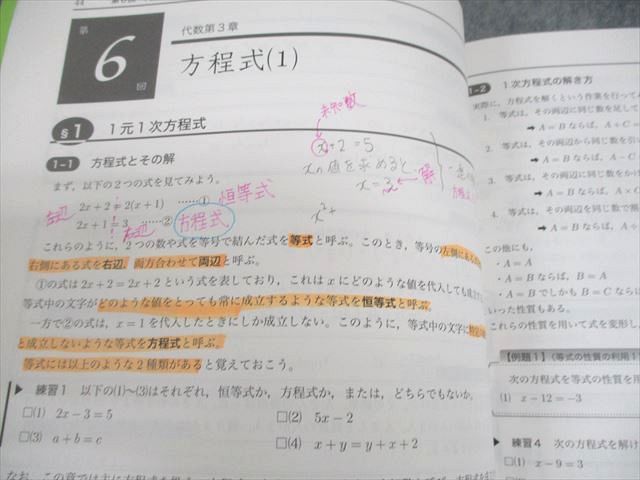 44
代数第3章
第6回
方程式(1)
§1 1元1次方程式
未知数
x+2=5
xの値を求めると
x=3 ← 解
1-1 方程式とその解
まず,以下の2つの式を見てみよう。
2x+2=2(x+1) ……① 恒等式
左辺
2x+1=3 ……② 方程式
右辺
x²+
これらのように,2つの数や式を等号で結んだ式を等式と呼ぶ。このとき,等号の左側にある
右側にある式を右辺,両方合わせて両辺と呼ぶ。
①の式は2x+2=2x+2という式を表しており,これはxにどのような値を代入しても成立
等式中の文字がどのような値をとっても常に成立するような等式を恒等式と呼ぶ。
一方で②の式は,x=1を代入したときにしか成立しない。このように,等式中の文字に
と成立しないような等式を方程式と呼ぶ。
等式には以上のような2種類があると覚えておこう。
練習1 以下の(1)〜(3)はそれぞれ,恒等式か,方程式か,または,どちらでもないか。
□(1) 2x−3=5
□(2) 5x−2
□(3) a+b=c
□(4) x+y=y+x+2
1-2 1次方程式の解き方
実際に,方程式を解くという作業を行って
1. 等式は,その両辺に同じ数を足して
➡ A=Bならば,A+C=
2. 等式は,その両辺から同じ数を引
➡ A=Bならば,A−C
3. 等式は,その両辺に同じ数を
➡ A=Bならば,A×
4. 等式は,その両辺を同じ数で
➡ A=Bならば,
この他にも,
・A=A
・A=Bならば,B=A
・A=BでしかもB=Cなら
いった性質もある。
これらの性質を用いて式を変形し
【例題1】(等式の性質の利用
次の方程式を等式の性質を用
(1) x−12=−3
練習4 次の方程式を解け
□(1) x−9=3